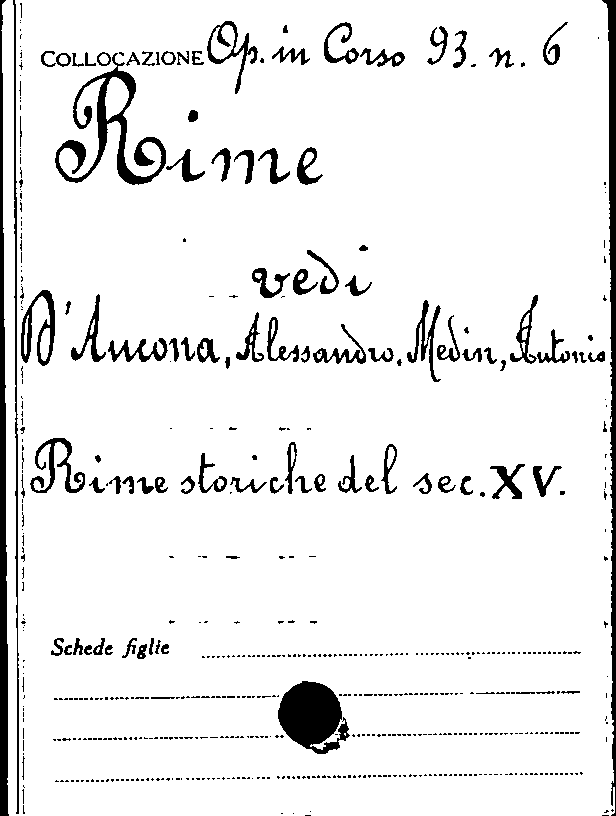 COLLOCAZIONE Op. in Corso 93. n. 6
Rime
vedi
D'Ancona, Alessandro. Medin, Antonio
Rime storiche del sec. XV.
Schede figlie